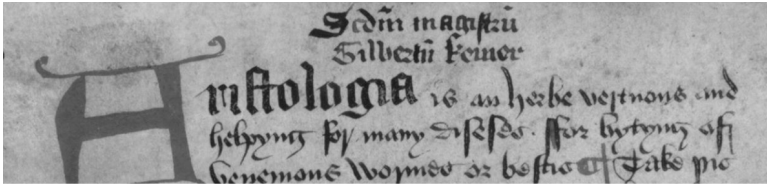 Scdm̄ magistrū
Gilbertū kemer
Aristologia is an herbe vertuous and
helpyng for many diseses. ffor bytyng off
venemous wormes or bestis ¶ Take þis